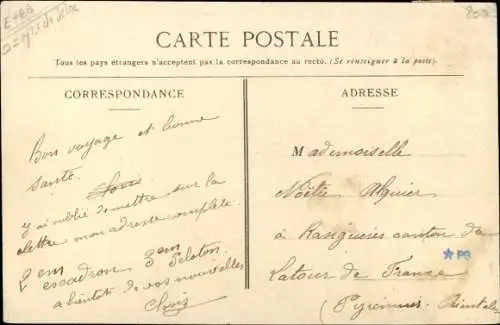 E+88
800
CARTE POSTALE
Tous les pays étrangers n'acceptent pas la correspondance au recto. (Se renseigner à la poste).
CORRESPONDANCE
ADRESSE
Bon voyage et bonne
santé.
Y ai oublié de mettre sur la
lettre mon adresse complète.
2em
escadron 3em Peloton.
a bientot de vos nouvelles
Mademoiselle
Noëlie Alquier
à canton de
Latour de France
(Pyrénnées Orientales
PG